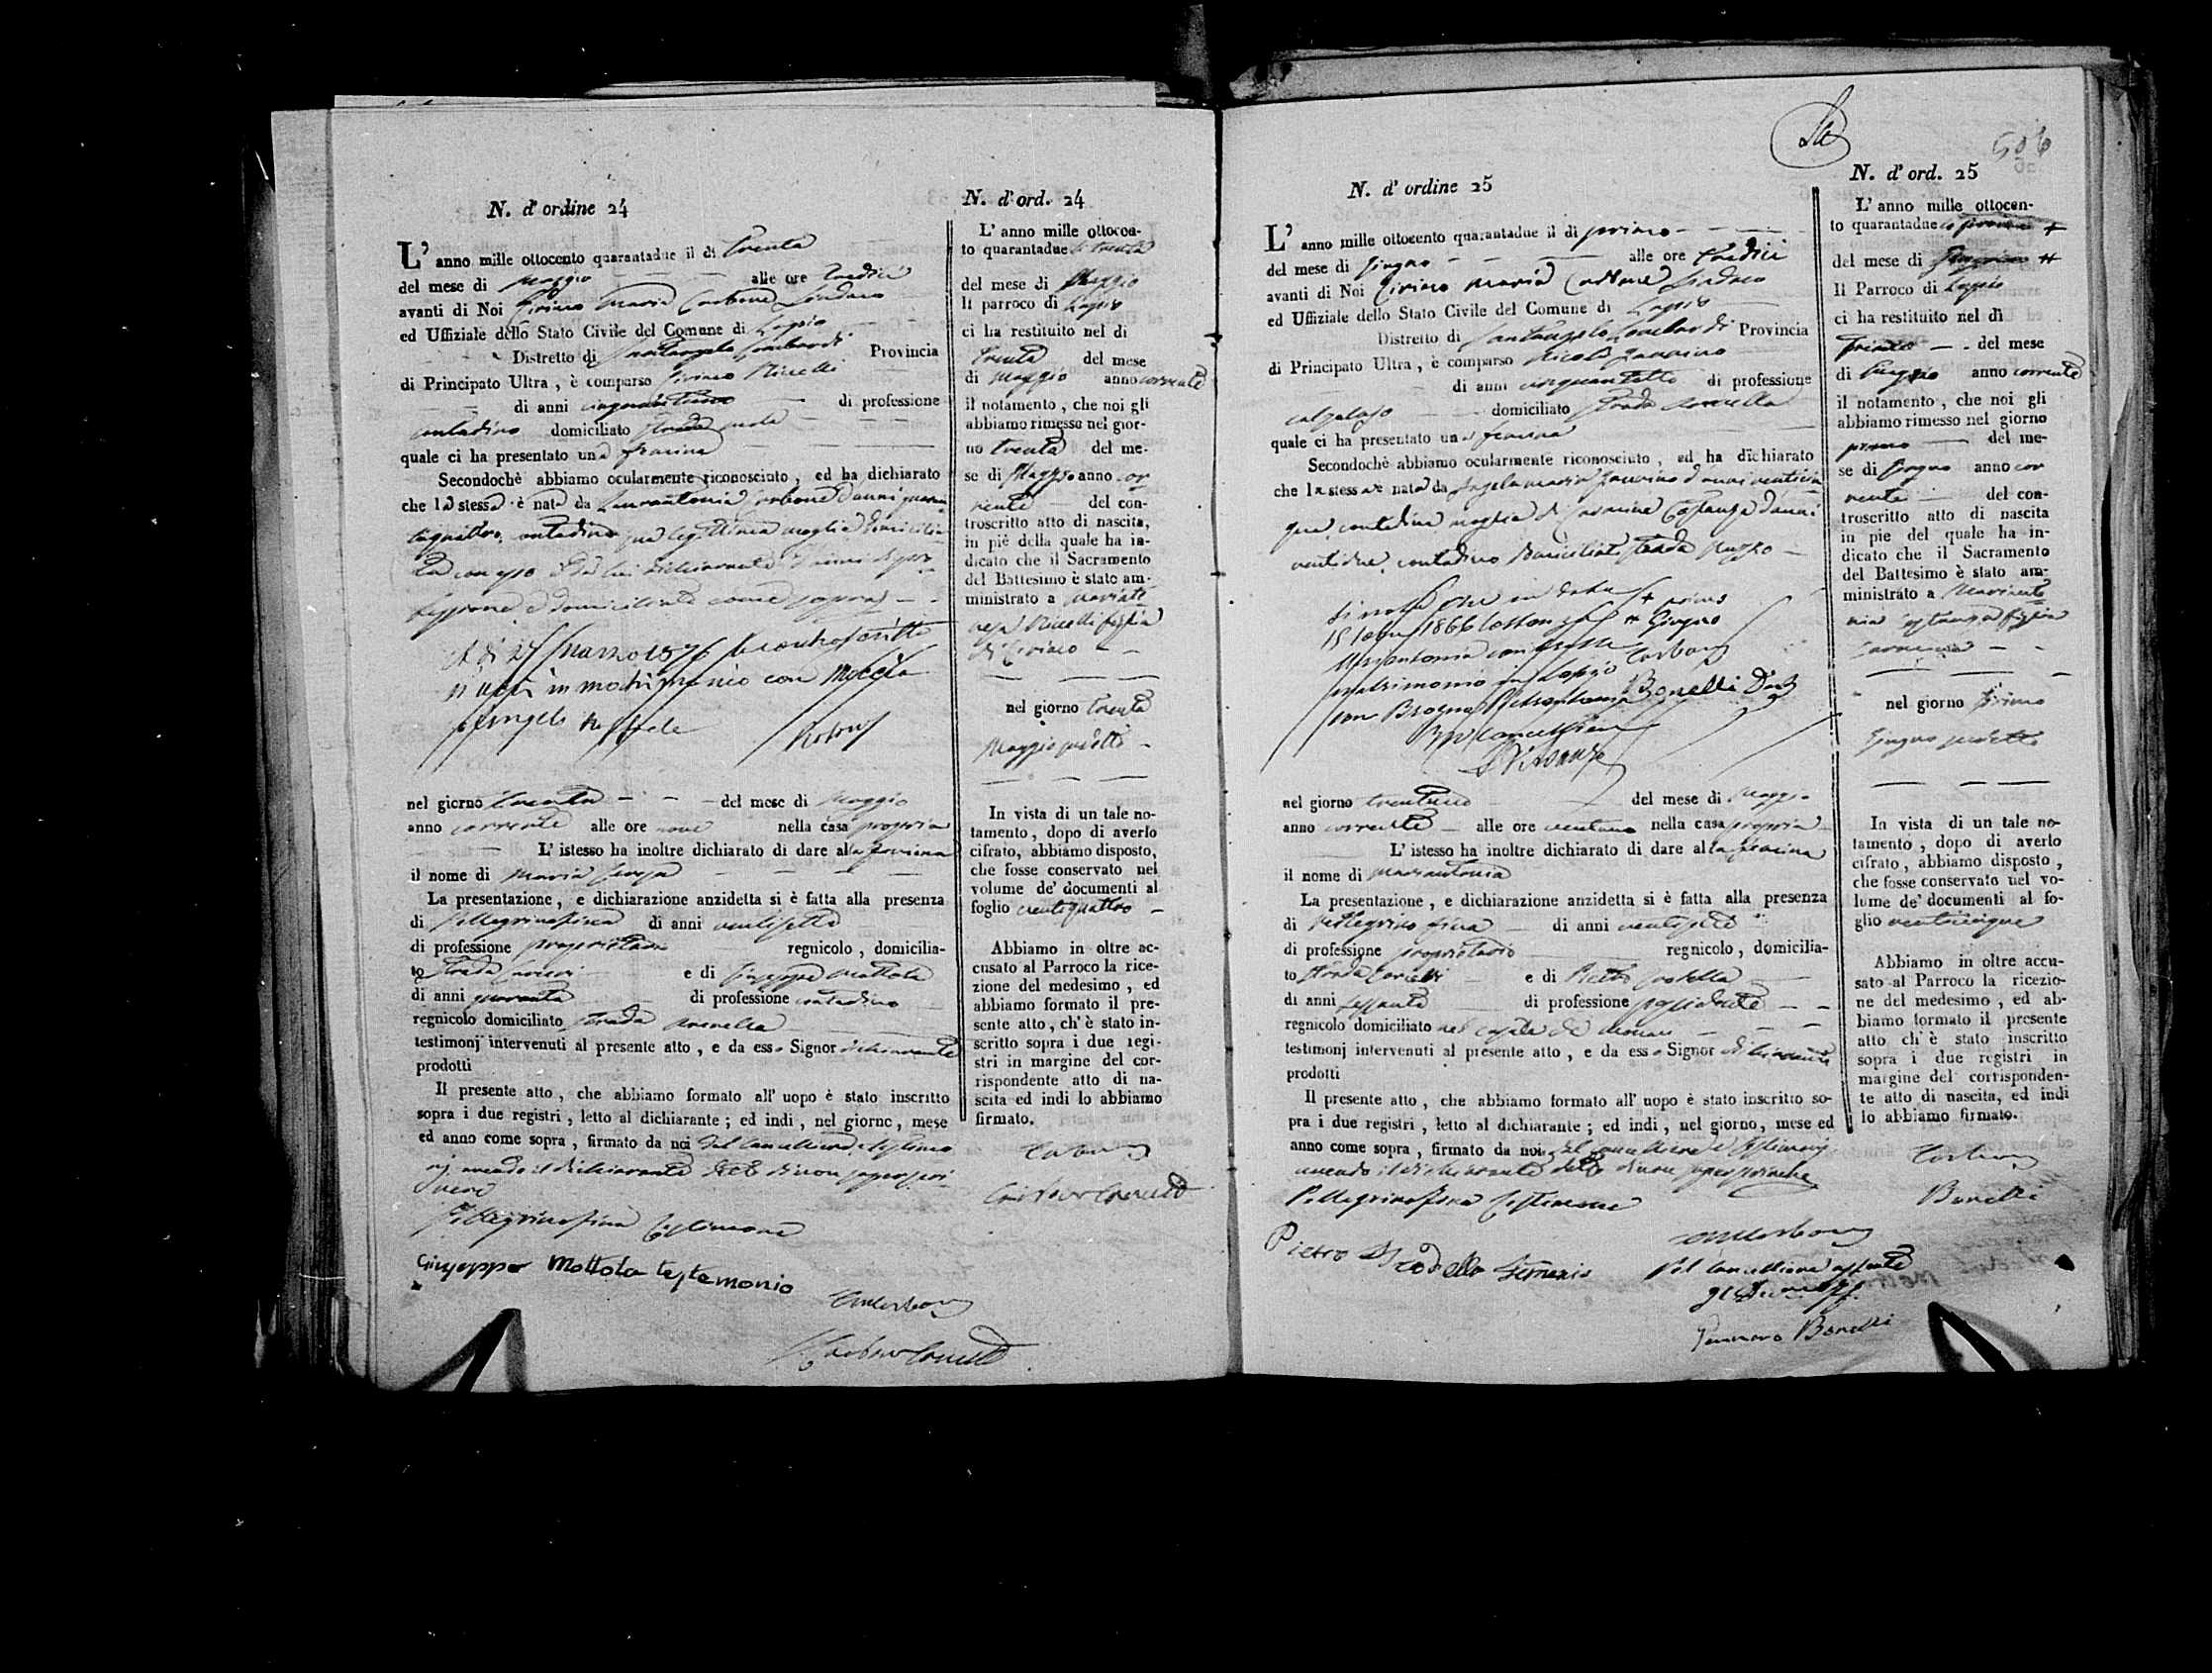 N. d'ordine 24
L' anno mille ottocento quarantadue il di trenta
del mese di Maggio alle ore tredici
avanti di Noi Ciriaco Maria Carbone Sindaco
ed Uffiziale dello Stato Civile del Comune di Lapio
Distretto di Santangelo Lombardi Provincia
di Principato Ultra, è comparso Ciriaco
di anni di professione
contadino domiciliato strada
quale ci ha presentato una femina
Secondochè abbiamo ocularmente riconosciuto, ed ha dichiarato
che la stessa è nata da Carbone d'anni
contadina sua legittima moglie
con esso
domiciliante come sopra
A dì 27 Marzo 18
in matrimonio con Moccia
nel giorno trenta del mese di Maggio
anno corrente alle ore nove nella casa propria
L' istesso ha inoltre dichiarato di dare alla femina
il nome di Maria Teresa
La presentazione, e dichiarazione anzidetta si è fatta alla presenza
di Pellegrino Fina di anni ventisette
di professione proprietario regnicolo, domicilia-
to strada e di Giuseppe Mottola
di anni quaranta di professione contadino
regnicolo domiciliato strada
testimonj intervenuti al presente atto, e da esso Signor dichiarante
prodotti
Il presente atto, che abbiamo formato all' uopo è stato inscritto
sopra i due registri, letto al dichiarante; ed indi, nel giorno, mese
ed anno come sopra, firmato da noi dal Cancelliere, e testimo
nj, avendo il dichiarante detto di non saper scri-
vere
Pellegrino Fina testimone
Giuseppe Mottola testemonio
N. d'ord. 24
L' anno mille ottocen-
to quarantadue li trenta
del mese di Maggio
Il parroco di Lapio
ci ha restituito nel di
trenta del mese
di Maggio anno corrente
il notamento, che noi gli
abbiamo rimesso nel gior-
no trenta del me-
se di Maggio anno cor
rente del con-
troscritto atto di nascita,
in piè della quale ha in-
dicato che il Sacramento
del Battesimo è stato am-
ministrato a Maria Te
resa figlia
di Ciriaco
nel giorno trenta
Maggio sudetto
In vista di un tale no-
tamento, dopo di averlo
cifrato, abbiamo disposto,
che fosse conservato nel
volume de' documenti al
foglio ventiquattro
Abbiamo in oltre ac-
cusato al Parroco la rice-
zione del medesimo, ed
abbiamo formato il pre-
sente atto, ch' è stato in-
scritto sopra i due regi-
stri in margine del cor-
rispondente atto di na-
scita ed indi lo abbiamo
firmato.
506
N. d' ordine 25
L' anno mille ottocento quarantadue il di primo
del mese di Giugno alle ore tredici
avanti di Noi Ciriaco Maria Carbone Sindaco
ed Uffiziale dello Stato Civile del Comune di Lapio
Distretto di Santangelo Lombardi Provincia
di Principato Ultra, è comparso Nicola
di anni cinquantotto di professione
calzolajo domiciliato strada
quale ci ha presentato una femina
Secondochè abbiamo ocularmente riconosciuto, ed ha dichiarato
che la stessa è nata da Angelamaria d'anni venticin
que, contadina moglie di Carmine Costanza d'anni
ventidue, contadino domiciliati strada
+ primo
1866 # Giugno
Mariantonia Carbone
matrimonio in Lapio Bonelli
nel giorno trentuno del mese di Maggio
anno corrente alle ore ventuno nella casa propria
L' istesso ha inoltre dichiarato di dare alla femina
il nome di Mariantonia
La presentazione, e dichiarazione anzidetta si è fatta alla presenza
di Pellegrino Fina di anni ventisette
di professione proprietario regnicolo, domicilia-
to strada e di Pietro
di anni sessanta di professione
regnicolo domiciliato
testimonj intervenuti al presente atto, e da esso Signor dichiarante
prodotti
Il presente atto, che abbiamo formato all' uopo è stato inscritto so-
pra i due registri, letto al dichiarante; ed indi, nel giorno, mese ed
anno come sopra, firmato da noi, dal Cancelliere e testimonj
avendo il dichiarante detto di non saper scrivere
Pellegrino Fina testimone
Pietro
Pel Cancelliere
Gennaro Bonelli
N. d' ord. 25
L' anno mille ottocen-
to quarantadue +
del mese di #
Il Parroco di Lapio
ci ha restituito nel dì
primo del mese
di Giugno anno corrente
il notamento, che noi gli
abbiamo rimesso nel giorno
primo del me-
se di Giugno anno cor
rente del con-
troscritto atto di nascita
in pie del quale ha in-
dicato che il Sacramento
del Battesimo è stato am-
ministrato a Marianto
nia Costanza figlia
Carmine
nel giorno primo
Giugno sudetto
In vista di un tale no-
tamento, dopo di averlo
cifrato, abbiamo disposto,
che fosse conservato nel vo-
lume de' documenti al fo-
glio venticinque
Abbiamo in oltre accu-
sato al Parroco la ricezio-
ne del medesimo, ed ab-
biamo formato il presente
atto ch' è stato inscritto
sopra i due registri in
margine del corrisponden-
te atto di nascita, ed indi
lo abbiamo firmato.
Carbone
Bonelli